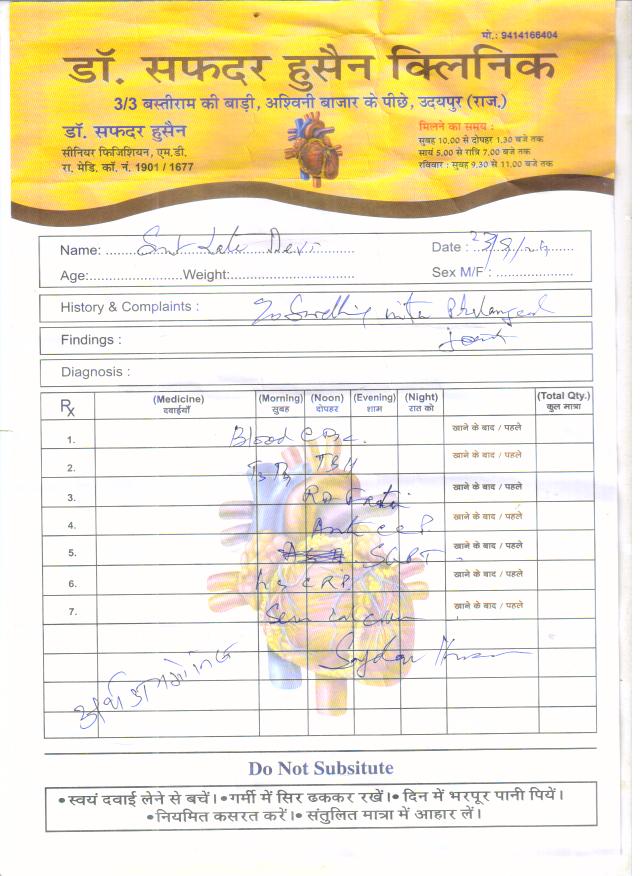 मो.: 9414166404
डॉ. सफदर हुसैन क्लिनिक
3/3 बस्तीराम की बाड़ी, अश्विनी बाजार के पीछे, उदयपुर (राज.)
डॉ. सफदर हुसैन
सीनियर फिजिशियन, एम.डी.
रा. मेडि. कॉ. नं. 1901 / 1677
मिलने का समय :
सुबह 10.00 से दोपहर 1.30 बजे तक
सायं 5.00 से रात्रि 7.00 बजे तक
रविवार : सुबह 9.30 से 11.00 बजे तक
Name: Smt Devi Date : 23/8/24
Age: Weight: Sex M/F :
History & Complaints : Swelling inter Phalangeal
Findings : Joint
Diagnosis :
Rx (Medicine) (Morning) (Noon) (Evening) (Night) (Total Qty.)
दवाईयाँ सुबह दोपहर शाम रात को कुल मात्रा
1. Blood CBC. खाने के बाद / पहले
2. T3 T4 TSH खाने के बाद / पहले
3. RA Factor खाने के बाद / पहले
4. Anti CCP. खाने के बाद / पहले
5. SGPT खाने के बाद / पहले
6. hs CRP खाने के बाद / पहले
7. Serum Calcium खाने के बाद / पहले
Do Not Subsitute
• स्वयं दवाई लेने से बचें। • गर्मी में सिर ढककर रखें। • दिन में भरपूर पानी पियें।
• नियमित कसरत करें। • संतुलित मात्रा में आहार लें।